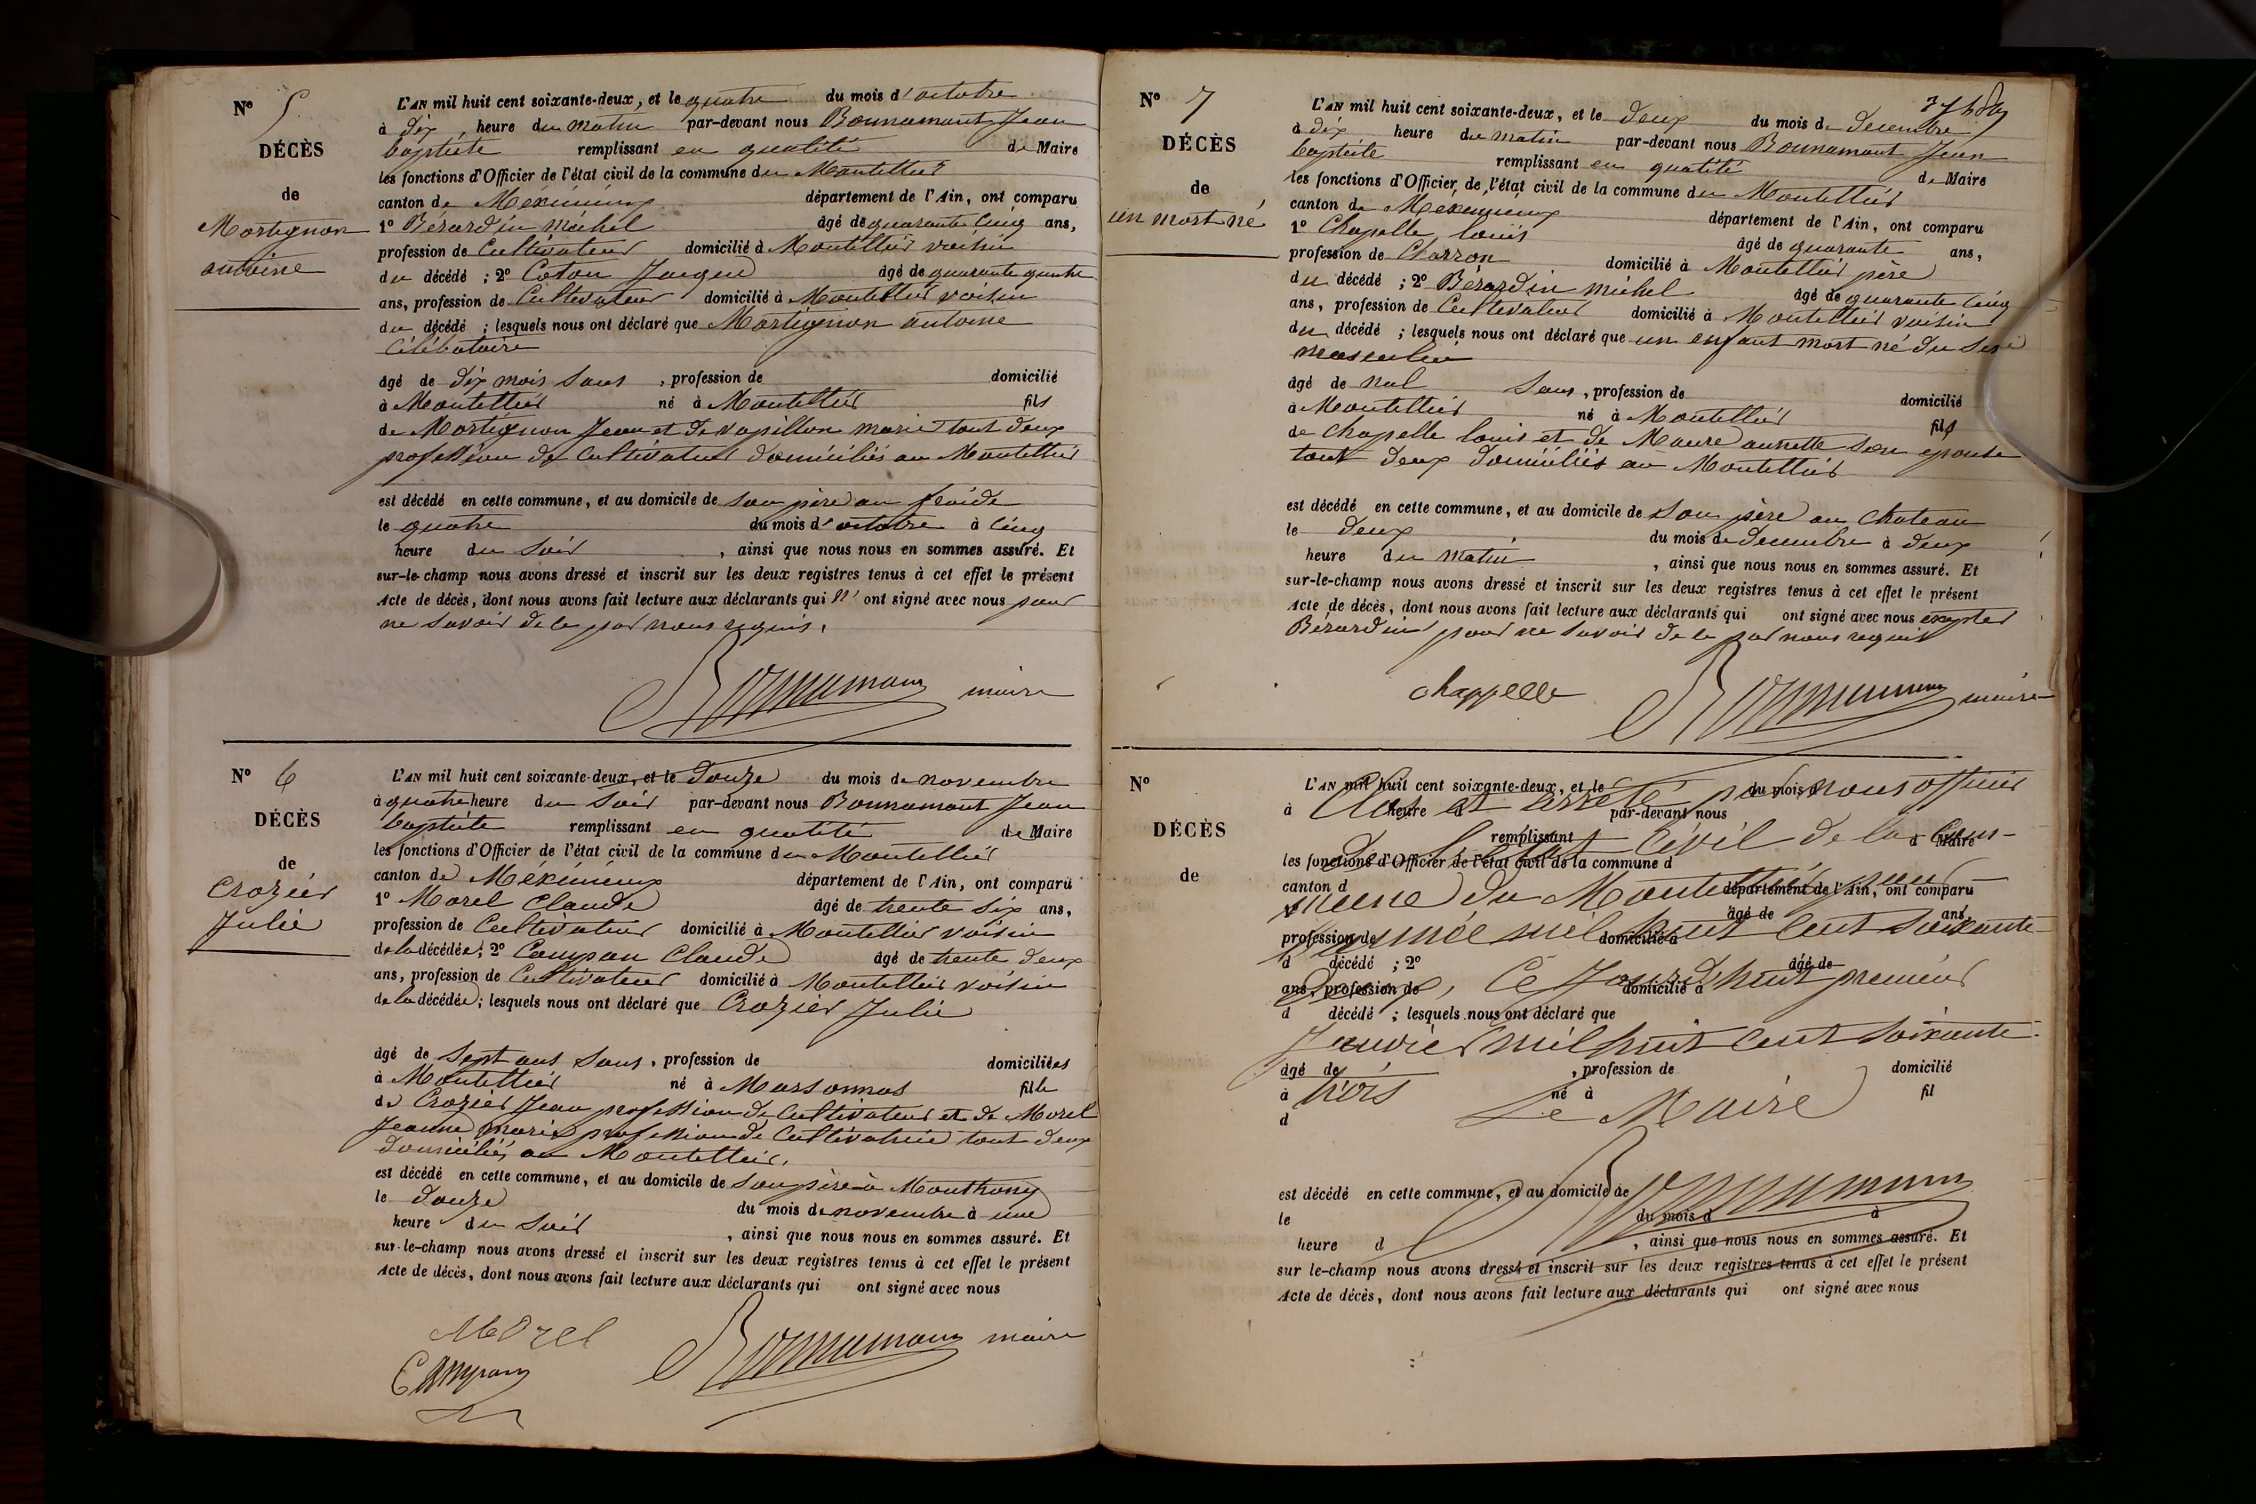 N° 5
DÉCÈS
de
Martignon
antoine
L'AN mil huit cent soixante-deux, et le quatre du mois d'octobre
à dix heure du matin par-devant nous Bonnamant Jean
baptiste remplissant en qualité de Maire
les fonctions d'Officier de l'état civil de la commune du Montellier
canton de Méximieux département de l'Ain, ont comparu
1° Bérardin michel âgé de quarante cinq ans,
profession de Cultivateur domicilié à Montellier voisin
du décédé ; 2° Coton Jacque âgé de quarante quatre
ans, profession de Cultivateur domicilié à Montellier voisin
du décédé ; lesquels nous ont déclaré que Martignon antoine
Célibataire
âgé de dix mois sans , profession de domicilié
à Montellier né à Montellier fils
de Martignon Jean et de vapillon marie tout deux
profession de Cultivateur domiciliés au Montellier
est décédé en cette commune, et au domicile de son père au
le quatre du mois d'octobre à cinq
heure du soir , ainsi que nous nous en sommes assuré. Et
sur-le-champ nous avons dressé et inscrit sur les deux registres tenus à cet effet le présent
Acte de décès, dont nous avons fait lecture aux déclarants qui n'ont signé avec nous pour
ne savoir de ce par nous requis.
Bonnamant maire
N° 6
DÉCÈS
de
Crozier
Julie
L'AN mil huit cent soixante-deux, et le douze du mois de novembre
à quatre heure du soir par-devant nous Bonnamant Jean
baptiste remplissant en qualité de Maire
les fonctions d'Officier de l'état civil de la commune du Montellier
canton de Méximieux département de l'Ain, ont comparu
1° Morel Claude âgé de trente six ans,
profession de Cultivateur domicilié à Montellier voisin
de la décédée ; 2° Campan Claude âgé de trente deux
ans, profession de Cultivateur domicilié à Montellier voisin
de la décédée ; lesquels nous ont déclaré que Crozier Julie
âgé de sept ans sans , profession de domiciliées
à Montellier né à Marsonnas fille
de Crozier Jean profession de Cultivateur et de Morel
Jeanne marie profession de Cultivatrice tout deux
domiciliés au Montellier.
est décédé en cette commune, et au domicile de son père à Monthony
le douze du mois de novembre à une
heure du soir , ainsi que nous nous en sommes assuré. Et
sur-le-champ nous avons dressé et inscrit sur les deux registres tenus à cet effet le présent
Acte de décès, dont nous avons fait lecture aux déclarants qui ont signé avec nous
Morel
Campan
Bonnamant maire
N° 7
DÉCÈS
de
un mort né
L'AN mil huit cent soixante-deux, et le deux du mois de decembre
à dix heure du matin par-devant nous Bonnamant Jean
baptiste remplissant en qualité de Maire
les fonctions d'Officier de l'état civil de la commune du Montellier
canton de Méximieux département de l'Ain, ont comparu
1° Chapelle louis âgé de quarante ans,
profession de Charron domicilié à Montellier père
du décédé ; 2° Bérardin michel âgé de quarante cinq
ans, profession de Cultivateur domicilié à Montellier voisin
du décédé ; lesquels nous ont déclaré que un enfant mort né du sexe
masculin
âgé de nul sans , profession de domicilié
à Montellier né à Montellier fils
de Chapelle louis et de Maure annette son epouse
tout deux domiciliés au Montellier
est décédé en cette commune, et au domicile de son père au Chateau
le deux du mois de decembre à deux
heure du matin , ainsi que nous nous en sommes assuré. Et
sur-le-champ nous avons dressé et inscrit sur les deux registres tenus à cet effet le présent
Acte de décès, dont nous avons fait lecture aux déclarants qui ont signé avec nous excepter
Bérardin pour ne savoir de ce par nous requis
chappelle
Bonnamant maire
N°
DÉCÈS
de
L'AN mil huit cent soixante-deux, et le du mois d
à heure d par-devant nous
remplissant d Maire
les fonctions d'Officier de l'état civil de la commune d
canton d département de l'Ain, ont comparu
1° âgé de ans,
profession de domicilié à
d décédé ; 2° âgé de
ans, profession de domicilié à
d décédé ; lesquels nous ont déclaré que
âgé de , profession de domicilié
à né à fil
d
est décédé en cette commune, et au domicile de
le du mois d à
heure d , ainsi que nous nous en sommes assuré. Et
sur le-champ nous avons dressé et inscrit sur les deux registres tenus à cet effet le présent
Acte de décès, dont nous avons fait lecture aux déclarants qui ont signé avec nous
Clos et arreté par nous officier
de l'etat Civil de la Com-
mune du Montellier pour
l'année mil huit cent soixante
deux, Ce Jourd'huit premier
Janvier mil huit cent soixante
trois
Le Maire
Bonnamant